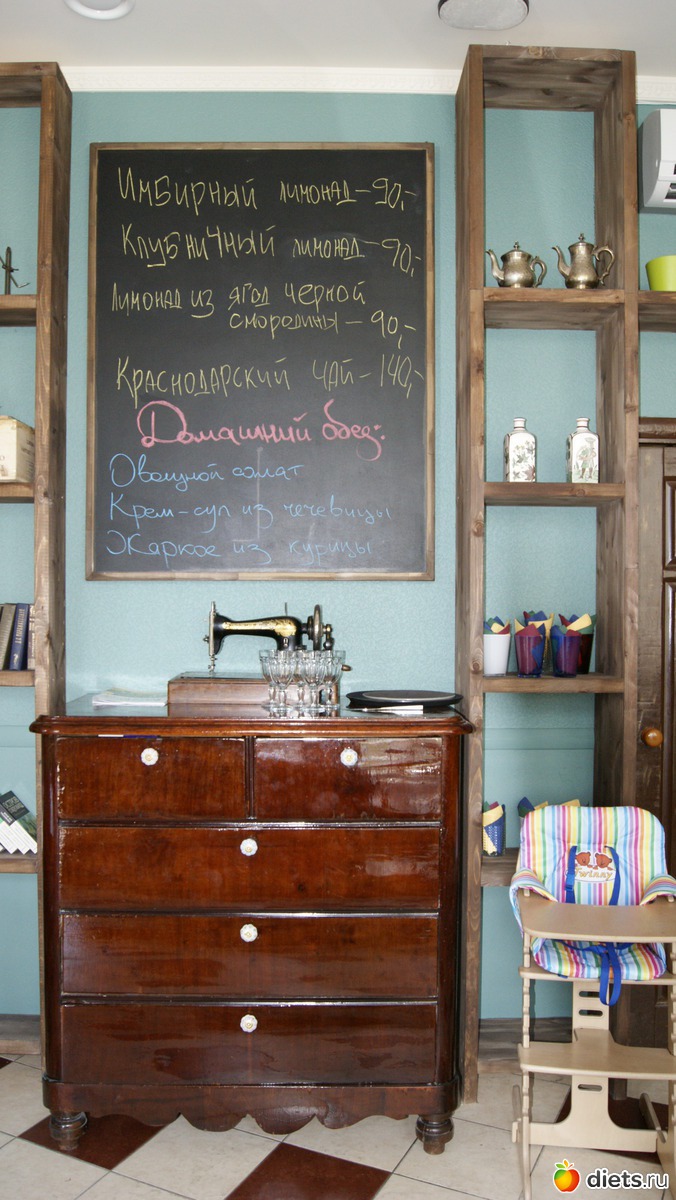 Имбирный лимонад-90,-
Клубничный лимонад-90,-
Лимонад из ягод черной
смородины-90,-
Краснодарский чай-140,-
Домашний обед:
Овощной салат
Крем-суп из чечевицы
Жаркое из курицы
Twinny
diets.ru